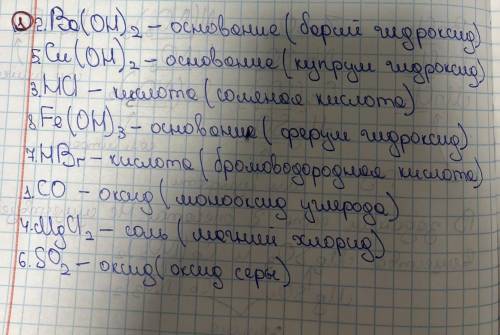 1 2. Ba(OH)2 – основание (барий гидроксид)
5. Cu(OH)2 – основание (купрум гидроксид)
3. HCl – кислота (соляная кислота)
8. Fe(OH)3 – основание (ферум гидроксид)
7. HBr – кислота (бромоводородная кислота)
1. CO – оксид (монооксид углерода)
4. MgCl2 – соль (магний хлорид)
6. SO2 – оксид (оксид серы)